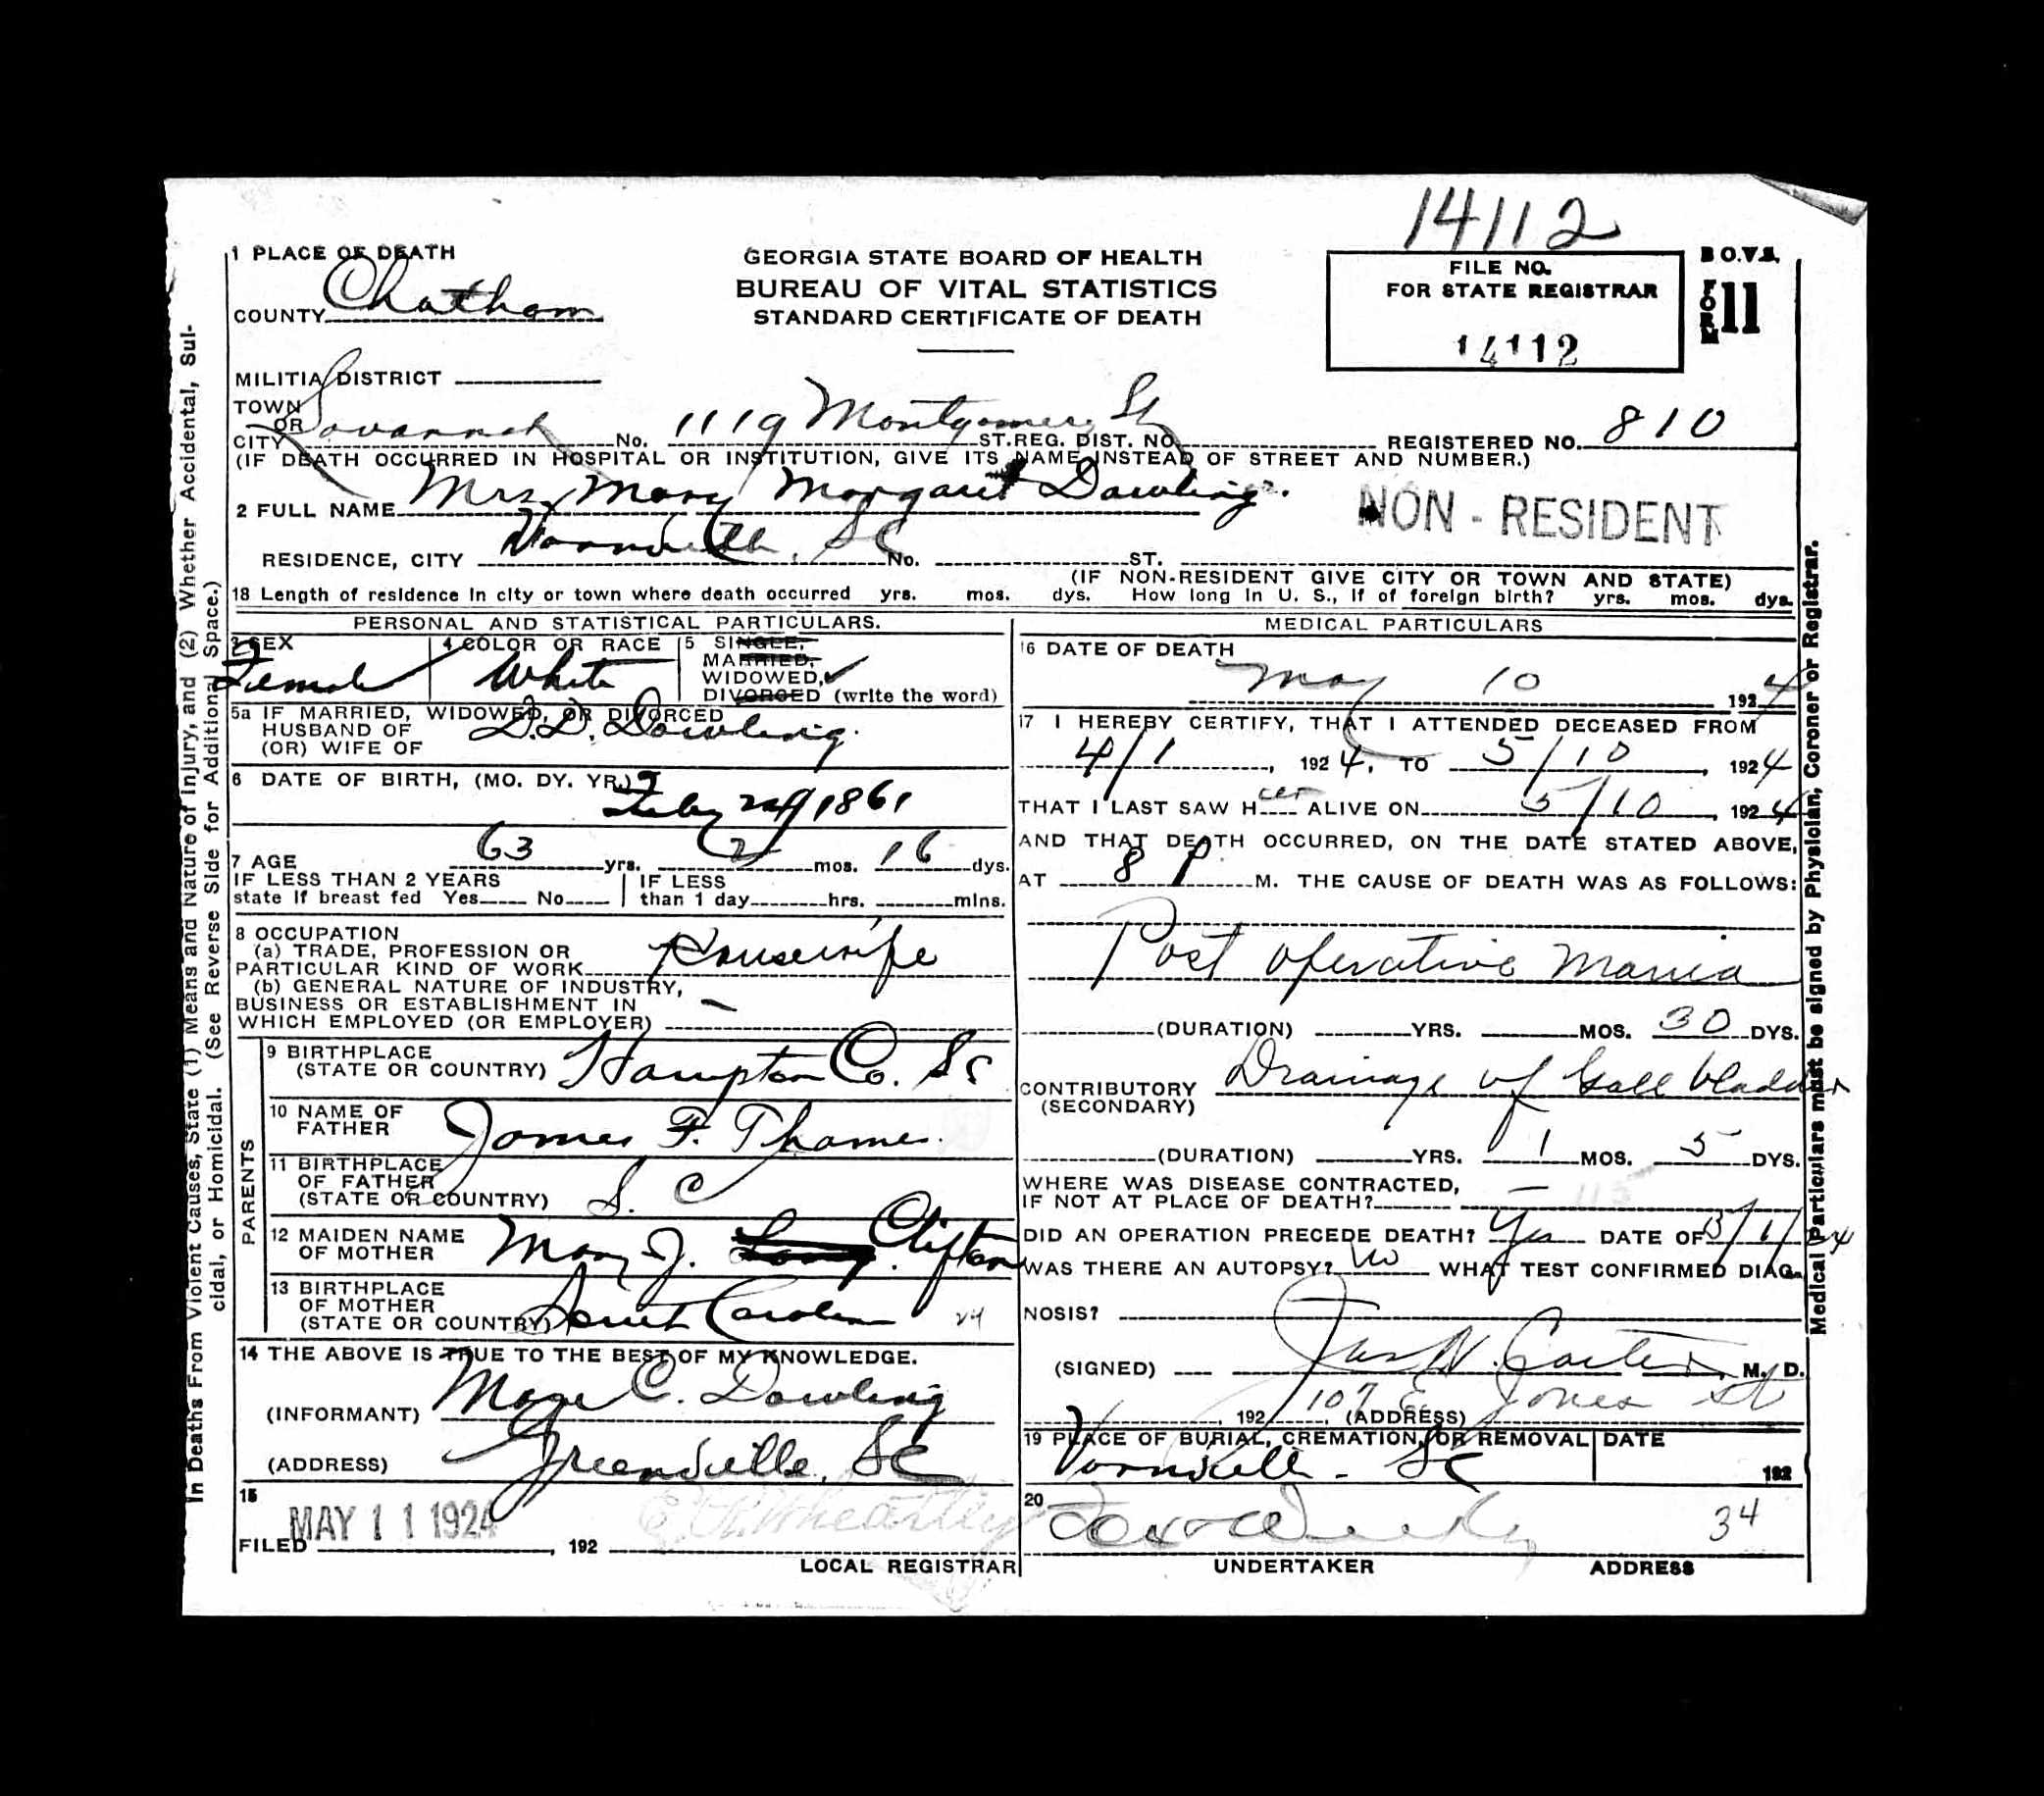 14112
1 PLACE OF DEATH
COUNTY Chatham
GEORGIA STATE BOARD OF HEALTH
BUREAU OF VITAL STATISTICS
STANDARD CERTIFICATE OF DEATH
FILE NO.
FOR STATE REGISTRAR
14112
B.O.V.S.
FORM 11
MILITIA DISTRICT
TOWN
OR
CITY Savannah No. 1119 Montgomery St ST. REG. DIST. NO. REGISTERED NO. 810
(IF DEATH OCCURRED IN HOSPITAL OR INSTITUTION, GIVE ITS NAME INSTEAD OF STREET AND NUMBER.)
2 FULL NAME Mrs. Mary Margaret Dowling.
NON-RESIDENT
RESIDENCE, CITY Varnville, SC No. ST.
(IF NON-RESIDENT GIVE CITY OR TOWN AND STATE)
18 Length of residence in city or town where death occurred yrs. mos. dys. How long in U. S., if of foreign birth? yrs. mos. dys.
PERSONAL AND STATISTICAL PARTICULARS.
3 SEX
Female
4 COLOR OR RACE
White
5 SINGLE,
MARRIED,
WIDOWED, ✓
DIVORCED (write the word)
5a IF MARRIED, WIDOWED, OR DIVORCED
HUSBAND OF
(OR) WIFE OF D.D. Dowling.
6 DATE OF BIRTH, (MO. DY. YR.)
Feby 24 1861
7 AGE 63 yrs. 2 mos. 16 dys.
IF LESS THAN 2 YEARS
state if breast fed Yes No
IF LESS
than 1 day hrs. mins.
8 OCCUPATION
(a) TRADE, PROFESSION OR
PARTICULAR KIND OF WORK Housewife
(b) GENERAL NATURE OF INDUSTRY,
BUSINESS OR ESTABLISHMENT IN
WHICH EMPLOYED (OR EMPLOYER) —
PARENTS
9 BIRTHPLACE
(STATE OR COUNTRY) Hampton Co. SC
10 NAME OF
FATHER James F. Thames.
11 BIRTHPLACE
OF FATHER
(STATE OR COUNTRY) S. C
12 MAIDEN NAME
OF MOTHER Mary J. Clifton
13 BIRTHPLACE
OF MOTHER
(STATE OR COUNTRY) South Carolina 24
14 THE ABOVE IS TRUE TO THE BEST OF MY KNOWLEDGE.
(INFORMANT) C. Dowling
(ADDRESS) Greenville, SC
15
FILED MAY 11 1924, 192
LOCAL REGISTRAR
MEDICAL PARTICULARS
16 DATE OF DEATH
May 10 1924
17 I HEREBY CERTIFY, THAT I ATTENDED DECEASED FROM
4/1, 1924, TO 5/10, 1924
THAT I LAST SAW HER ALIVE ON 5/10, 1924
AND THAT DEATH OCCURRED, ON THE DATE STATED ABOVE,
AT 8 P M. THE CAUSE OF DEATH WAS AS FOLLOWS:
Post operative Mania
(DURATION) YRS. MOS. 30 DYS.
CONTRIBUTORY Drainage of Gall bladder
(SECONDARY)
(DURATION) YRS. 1 MOS. 5 DYS.
WHERE WAS DISEASE CONTRACTED,
IF NOT AT PLACE OF DEATH? —
DID AN OPERATION PRECEDE DEATH? Yes DATE OF
WAS THERE AN AUTOPSY? No WHAT TEST CONFIRMED DIAG-
NOSIS?
(SIGNED) Jas N. Carter, M. D.
, 192 , (ADDRESS) 107 E Jones St
19 PLACE OF BURIAL, CREMATION, OR REMOVAL DATE
Varnville - SC 192
20
34
UNDERTAKER ADDRESS
In Deaths From Violent Causes, State (1) Means and Nature of Injury, and (2) Whether Accidental, Sui-
cidal, or Homicidal. (See Reverse Side for Additional Space.)
Medical Particulars must be signed by Physician, Coroner or Registrar.